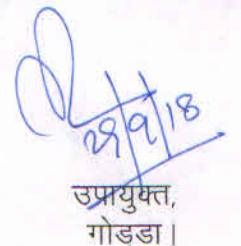 29/9/18
उपायुक्त,
गोड्डा।